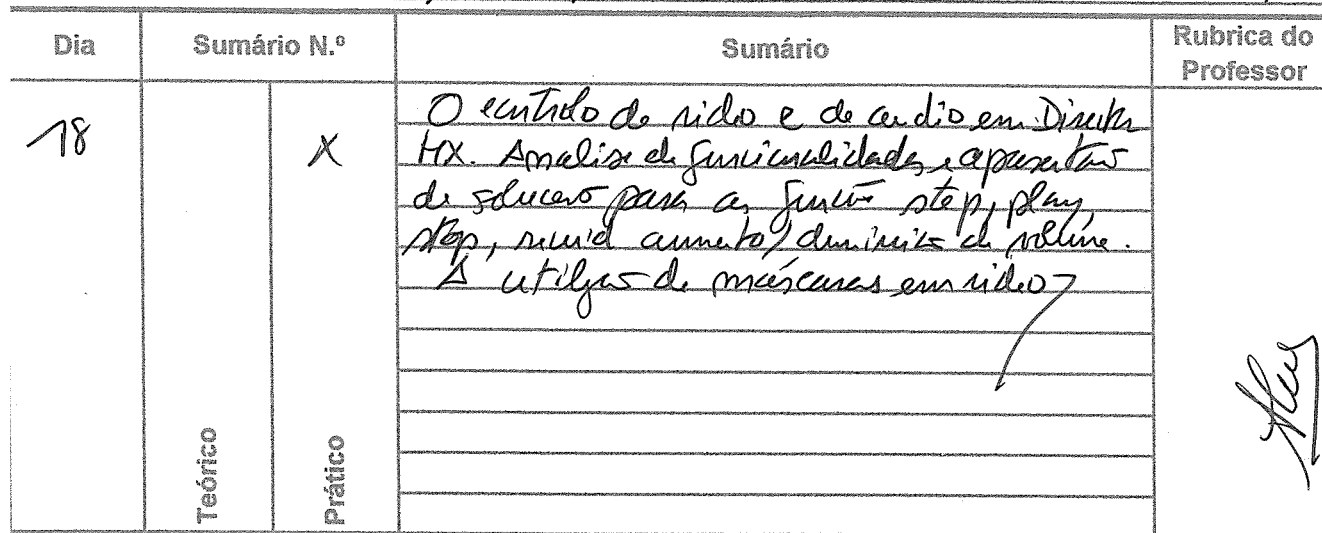 Dia Sumário N.º Sumário Rubrica do Professor
18 X
O controlo de video e de audio em Director
MX. Analise de funcionalidades e apresentação
de solucoes para as funcões step, play,
stop, rewind aumento/diminuição de volume.
A utilização de máscaras em video
Teórico
Prático